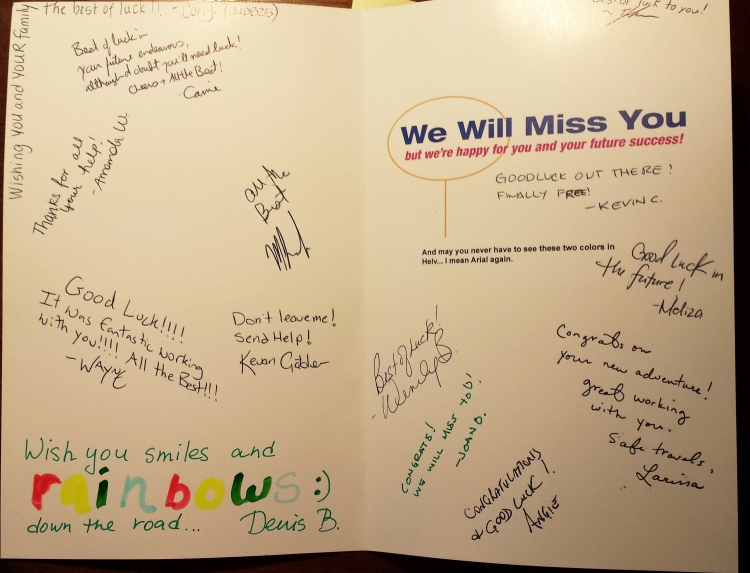 Wishing you and YOUR family
the best of luck!! - Cori J.
Best of luck in
your future endeavors,
although I doubt you'll need luck!
Cheers + All the Best!
- Carrie
Thanks for all
your help!
- Amanda W.
All the
Best
Good Luck!!!!
It was fantastic working
with you!!!! All the Best!!!
- WAYNE
Don't leave me!
Send Help!
Kevan
Wish you smiles and
rainbows :)
down the road... Denis B.
luck to you!
We Will Miss You
but we're happy for you and your future success!
GOODLUCK OUT THERE!
FINALLY FREE!
- KEVIN C.
And may you never have to see these two colors in
Helv... I mean Arial again.
Good luck in
the future!
- Meliza
Best of Luck!
- Wendy B.
CONGRATS!
WE WILL MISS YOU!
- JOAN D.
Congrats on
your new adventure!
great working
with you.
Safe travels,
Larissa
CONGRATULATIONS
& GOOD LUCK!
ANGIE